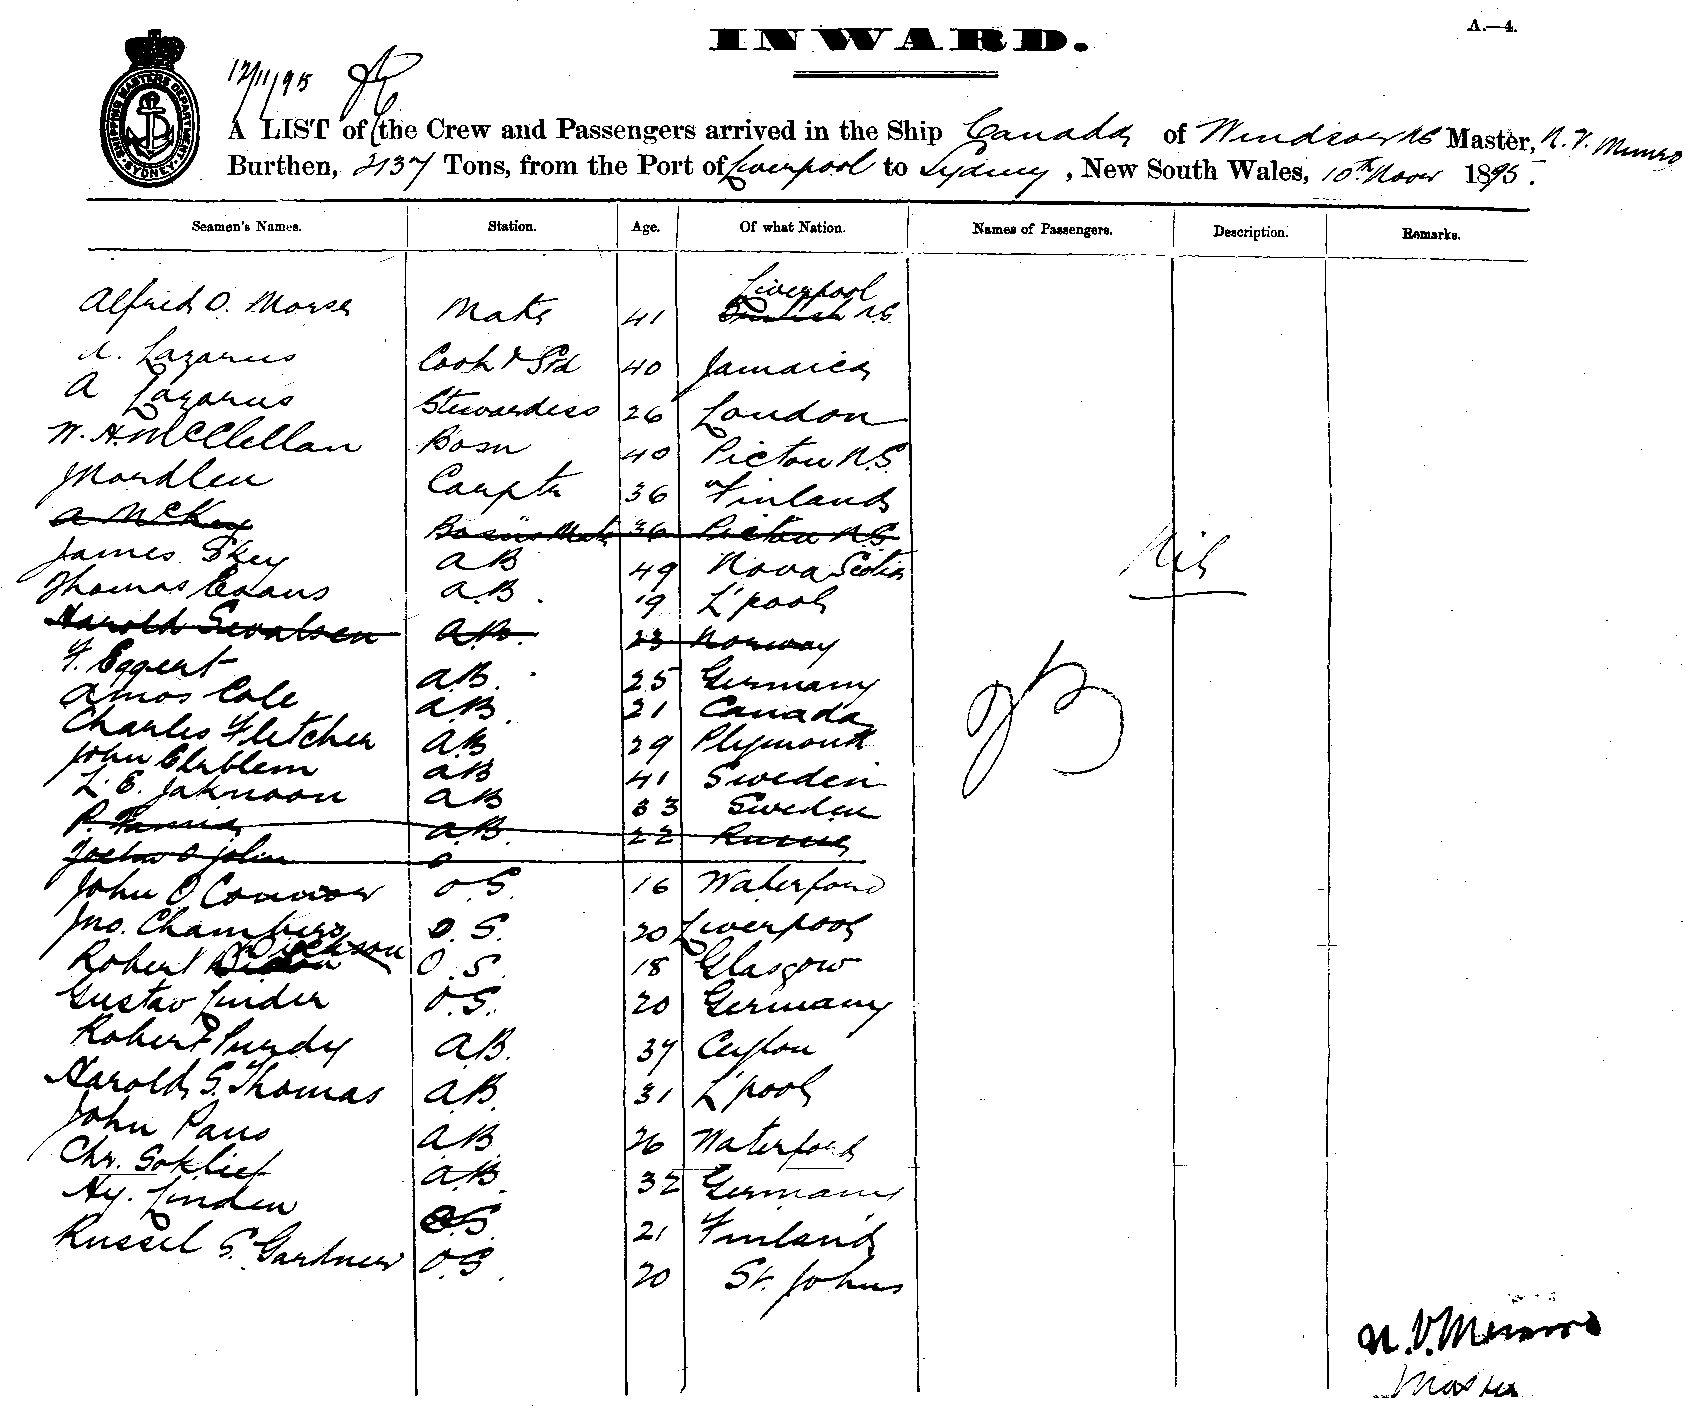 INWARD.
A.—4.
SHIPPING MASTERS DEPARTMENT SYDNEY
12/11/95
A LIST of the Crew and Passengers arrived in the Ship Canada of Windsor NS Master, N. V. Munro
Burthen, 2137 Tons, from the Port of Liverpool to Sydney, New South Wales, 10th Novr 1895.
Seamen's Names. Station. Age. Of what Nation. Names of Passengers. Description. Remarks.
Alfred O. Morse Mate 41 Liverpool N.S.
Lazarus Cook & Std 40 Jamaica
A Lazarus Stewardess 26 London
W. H. McClellan Bosn 40 Pictou N.S.
J Nordlen Carptr 36 Finland
A McKey Bosuns Mate 36 Pictou N.S.
James Skey A B 49 Nova Scotia
Thomas Evans A.B. 19 L'pool
Harold Sivalsen A.B. 23 Norway
F. Eggert A.B. 25 Germany
Amos Cole A.B. 21 Canada
Charles Fletcher A.B 29 Plymouth
John AB 41 Sweden
L. E. AB 33 Sweden
P. A.B. 22
John
John O Connor O S. 16 Waterford
Jno. Chambers O. S. 20 Liverpool
Robert Dickson O. S. 18 Glasgow
Gustav Linder O.S. 20 Germany
Robert Purdy A.B. 37 Ceylon
Harold S. Thomas A.B. 31 L'pool
John Paus A.B. 26 Waterford
Chr. Goklief A.B. 32 Germany
Hy. Linden O.S 21 Finland
Russel S. Gardner O.S. 20 St. Johns
Nil
N. V. Munro
Master